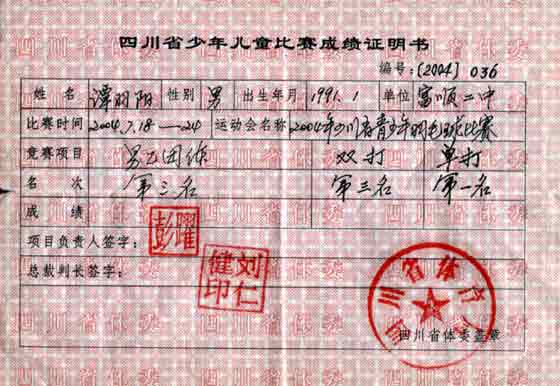 四川省少年儿童比赛成绩证明书
编号:〔2004〕036
姓名 谭羽阳 性别 男 出生年月 1991.1 单位 富顺二中
比赛时间 2004.7.18—24 运动会名称 2004年四川省青少年羽毛球比赛
竞赛项目 男乙团体 双打 单打
名次 第三名 第三名 第一名
成绩
项目负责人签字: 彭曜
总裁判长签字: 刘仁健印
四川省体育
四川省体委盖章